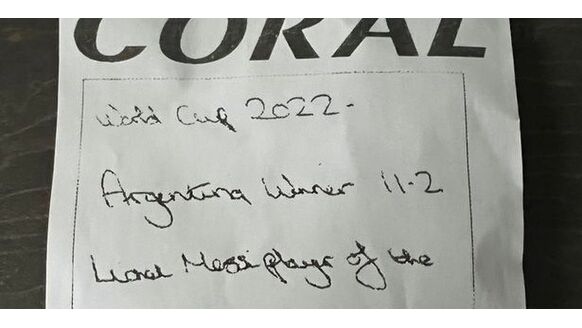 CORAL
World Cup 2022-
Argentina Winner 11-2
Lional Messi player of the